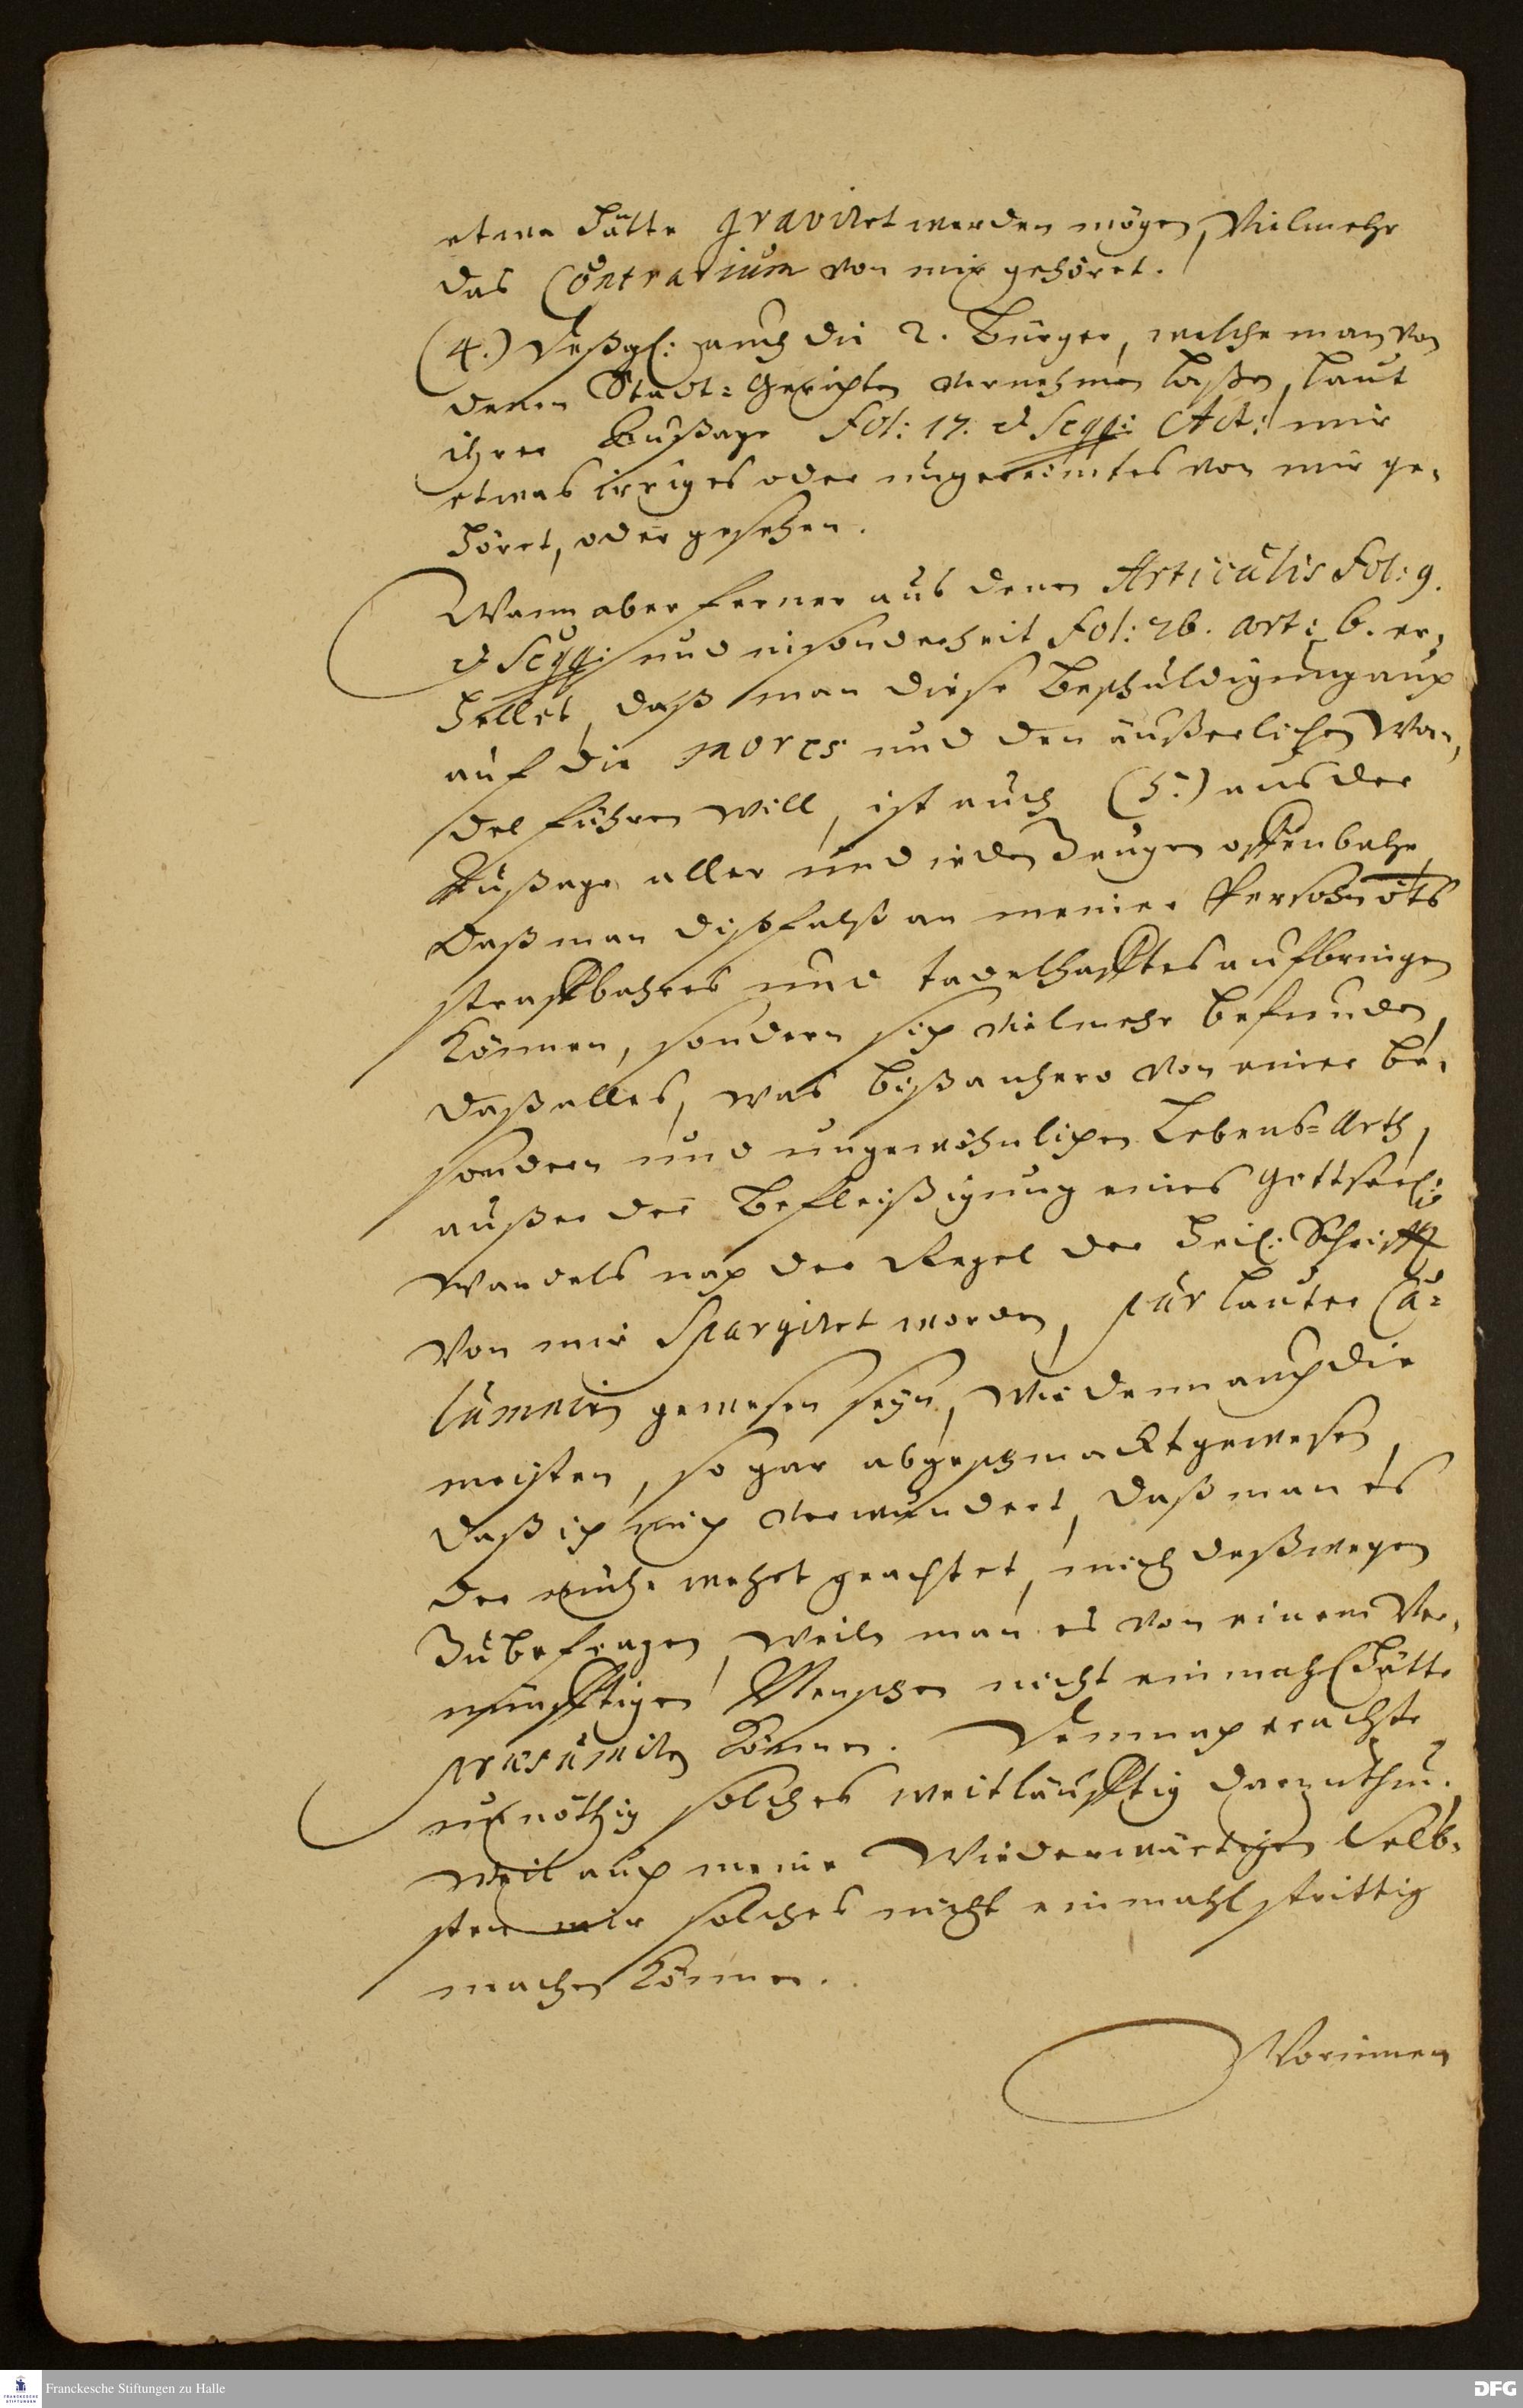 etwa hätte graviret werden mögen, Vielmehr
das Contrarium von mir gehöret.
(4.) Deßgl: auch die 2. Bürger, welche man von
denen Stadt-Gerichten vernehmen laßen, laut
ihrer Außage Fol: 17. & seqq: Act: nie
etwas irriges oder ungereimtes von mir ge-
höret, oder gesehen.
Wann aber ferner aus denen Articulis Fol: 9.
& seqq: und insonderheit Fol: 26. art: 6. er-
hellet, daß man diese Beschuldigung auch
auf die mores und den äußerlichen Wan-
del führen will, ist auch (5.) aus der
Außage aller und ieden Zeugen offenbahr,
Daß man dißfalß an meiner Persohn nichts
straffbahres und tadelhafftes aufbringen
können, sondern sich vielmehr befunden,
daß alles, was bißanhero von einer be-
sondern und ungewöhnlichen Lebens-Arth,
außer der Befleißigung eines Gottseel:
Wandels nach der Regel der Heil: Schrifft
Von mir spargiret worden, pur lauter Ca-
lumnien gewesen seyn, wie denn auch die
meisten, so gar abgeschmackt gewesen,
Daß ich mich verwundert, daß man es
der mühe wehrt geachtet, mich deßwegen
Zubefragen, weiln man es von einem Ver-
nünfftigen Menschen nicht einmahl hätte
præsumiren können. Demnach erachte
unnöthig solches weitläufftig darzuthun,
weil auch meine Wiederwärtigen selb-
sten mir solches nicht einmahl strittig
machen können.
Vornimen
Franckesche Stiftungen zu Halle
DFG